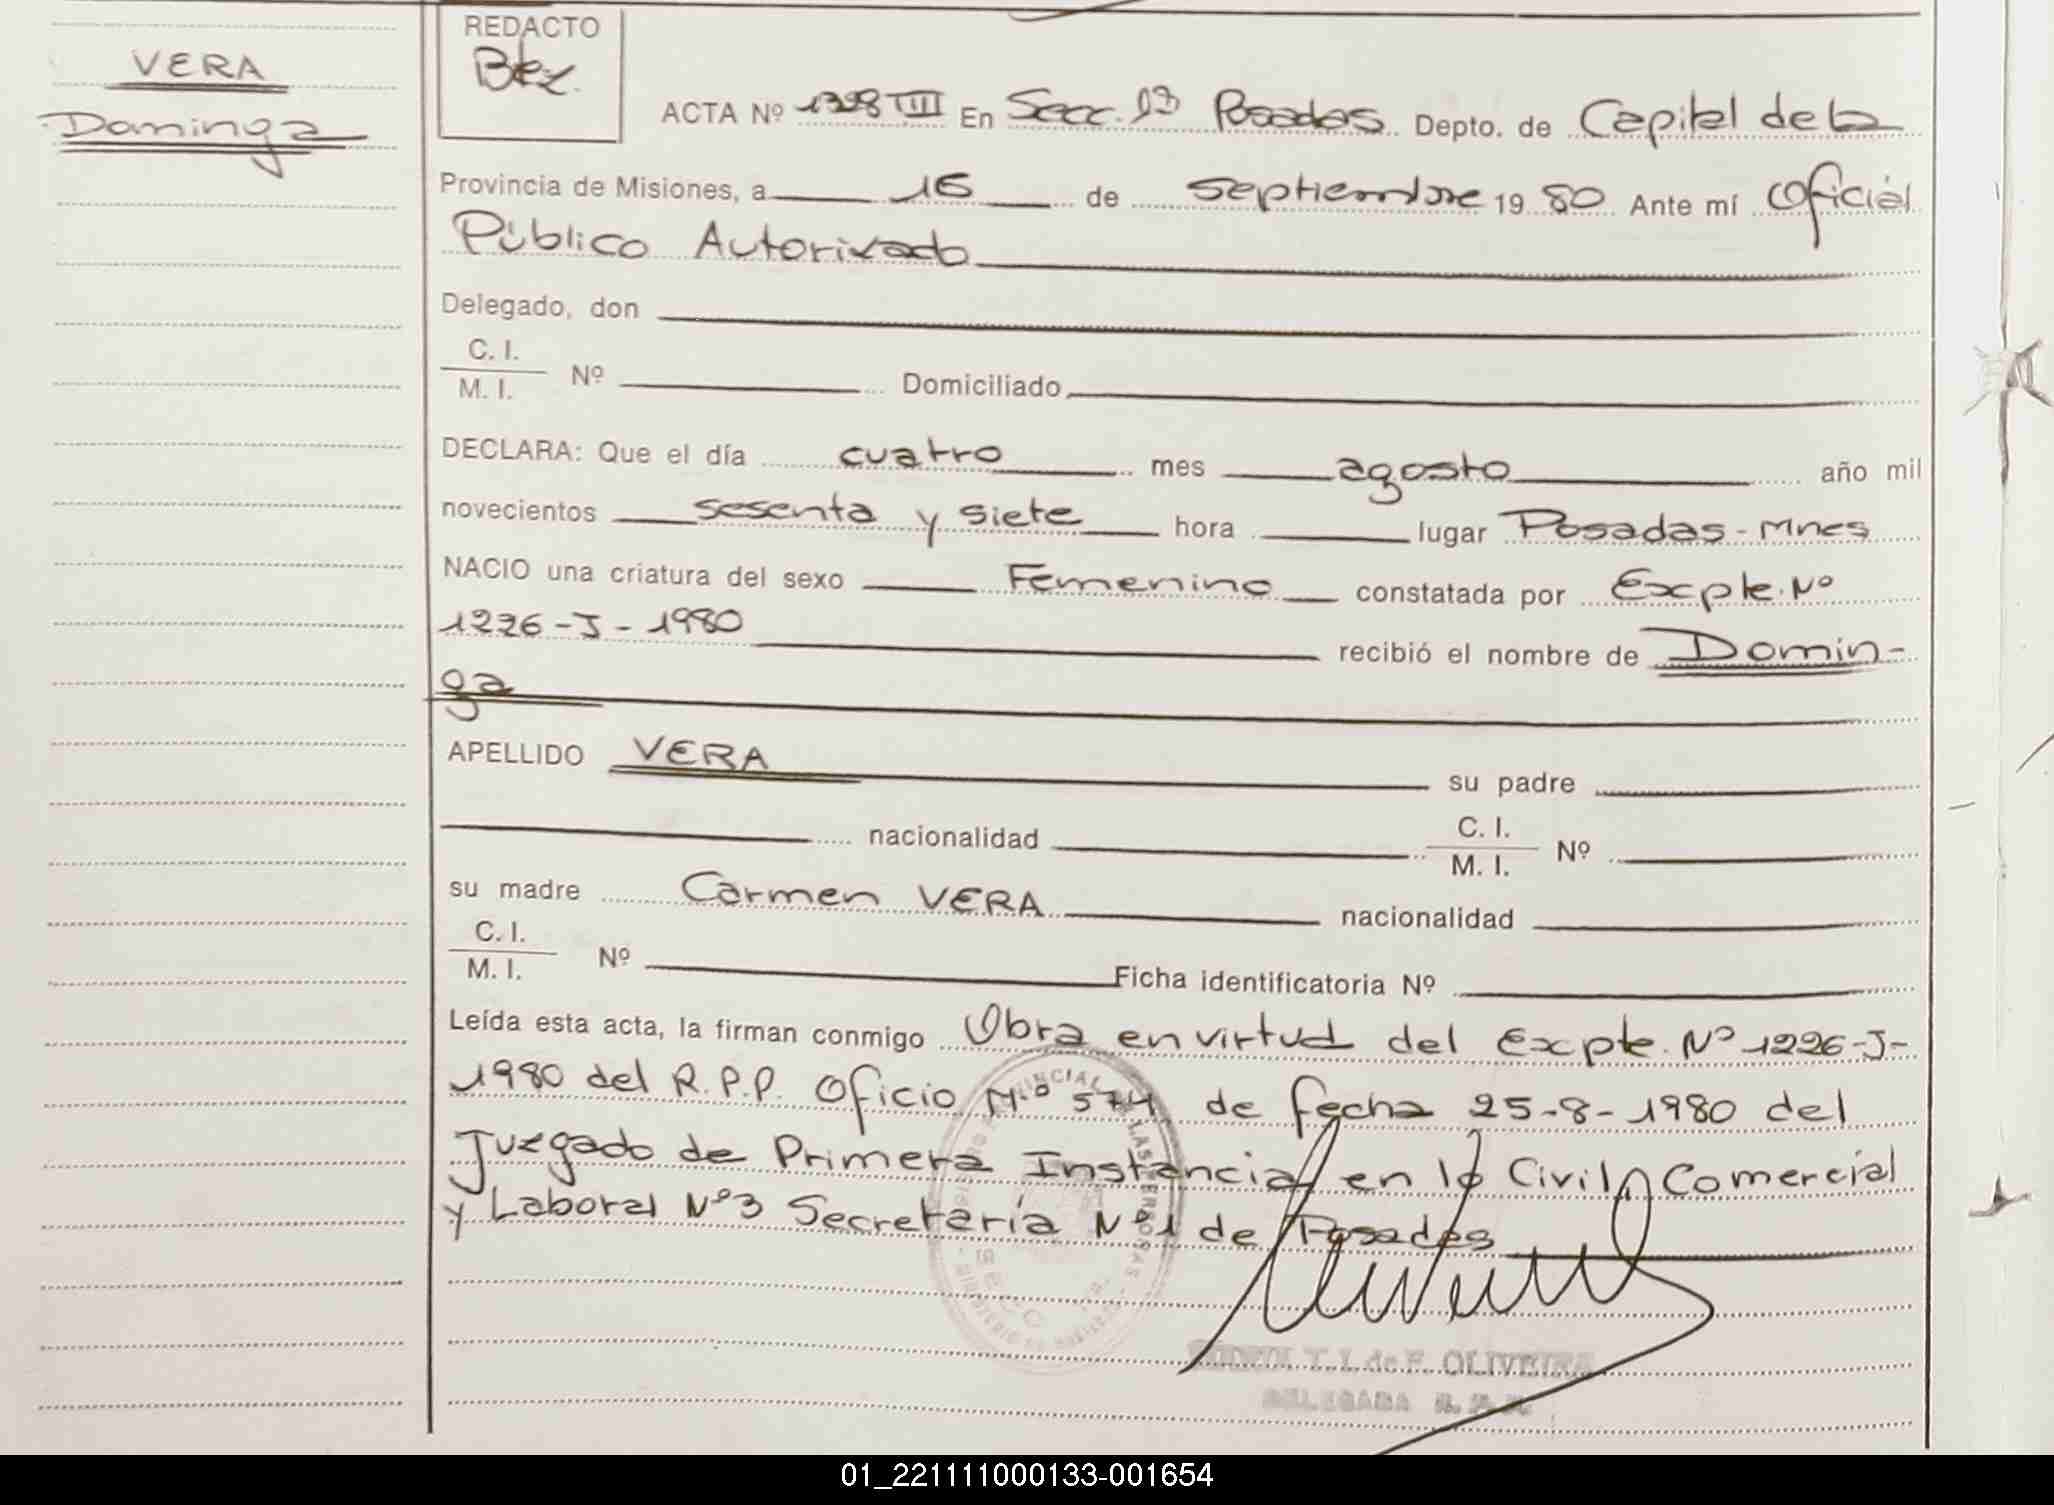 VERA
Dominga
REDACTO
ACTA Nº 1398 III En Secc. 1ª Posadas Depto. de Capital de la
Provincia de Misiones, a 16 de septiembre 19 80 Ante mí Oficial
Público Autorizado
Delegado, don
C. I.
M. I. Nº Domiciliado
DECLARA: Que el día cuatro mes agosto año mil
novecientos sesenta y siete hora lugar Posadas - Mnes
NACIO una criatura del sexo Femenino constatada por Expte. Nº
1226-J-1980 recibió el nombre de Domin-
ga
APELLIDO VERA su padre
nacionalidad C. I.
M. I. Nº
su madre Carmen VERA nacionalidad
C. I.
M. I. Nº Ficha identificatoria Nº
Leída esta acta, la firman conmigo Obra en virtud del Expte. Nº 1226-J-
1980 del R.P.P. Oficio Nº 574 de fecha 25-8-1980 del
Juzgado de Primera Instancia en lo Civil, Comercial
y Laboral Nº3 Secretaría Nº1 de Posadas
T. I. de F. OLIVEIRA
DELEGADA R. P. P.
01_221111000133-001654